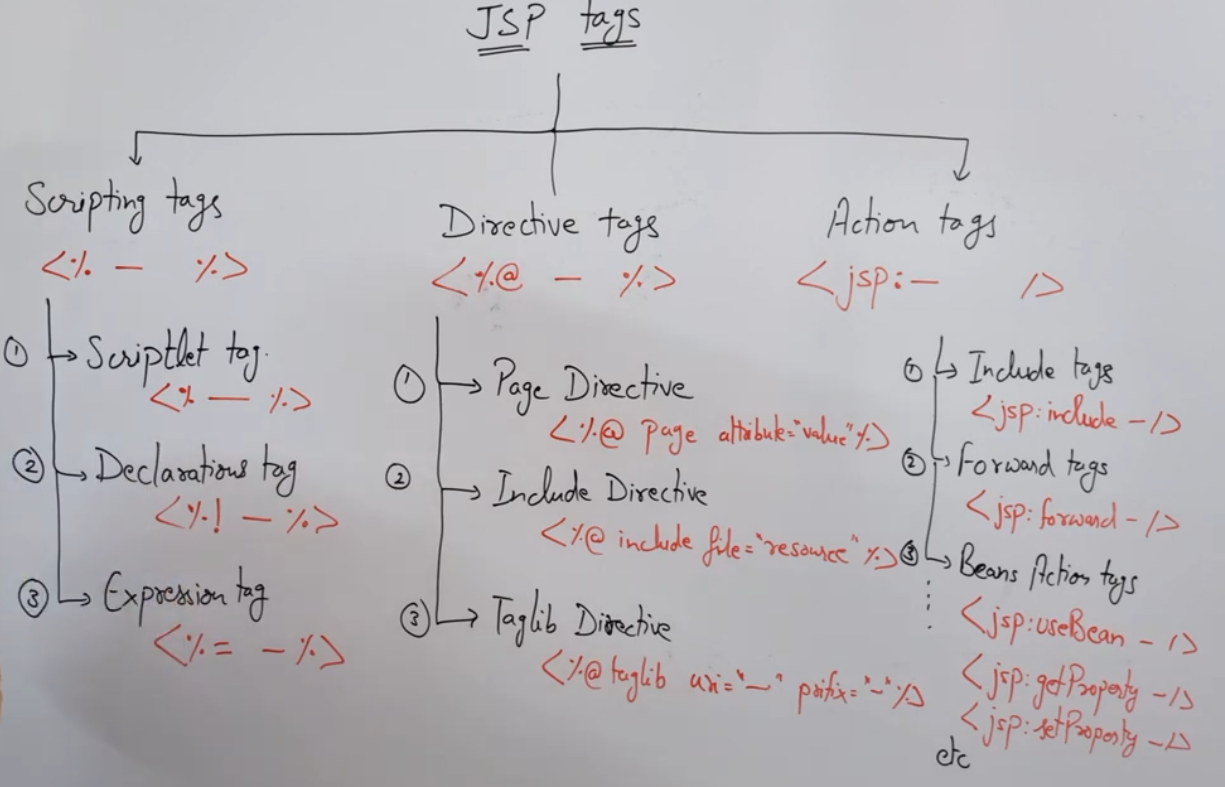 JSP tags
Scripting tags
<% — %>
① Scriptlet tag.
<% — %>
② Declarations tag
<%! — %>
③ Expression tag
<%= — %>
Directive tags
<%@ — %>
① Page Directive
<%@ page attribute="value" %>
② Include Directive
<%@ include file="resource" %>
③ Taglib Directive
<%@ taglib uri="—" prifix="-" %>
Action tags
<jsp:— />
① Include tags
<jsp:include - />
② Forward tags
<jsp:forward - />
③ Beans Action tags
<jsp:useBean - />
<jsp:getProperty - />
<jsp:setProperty - />
etc